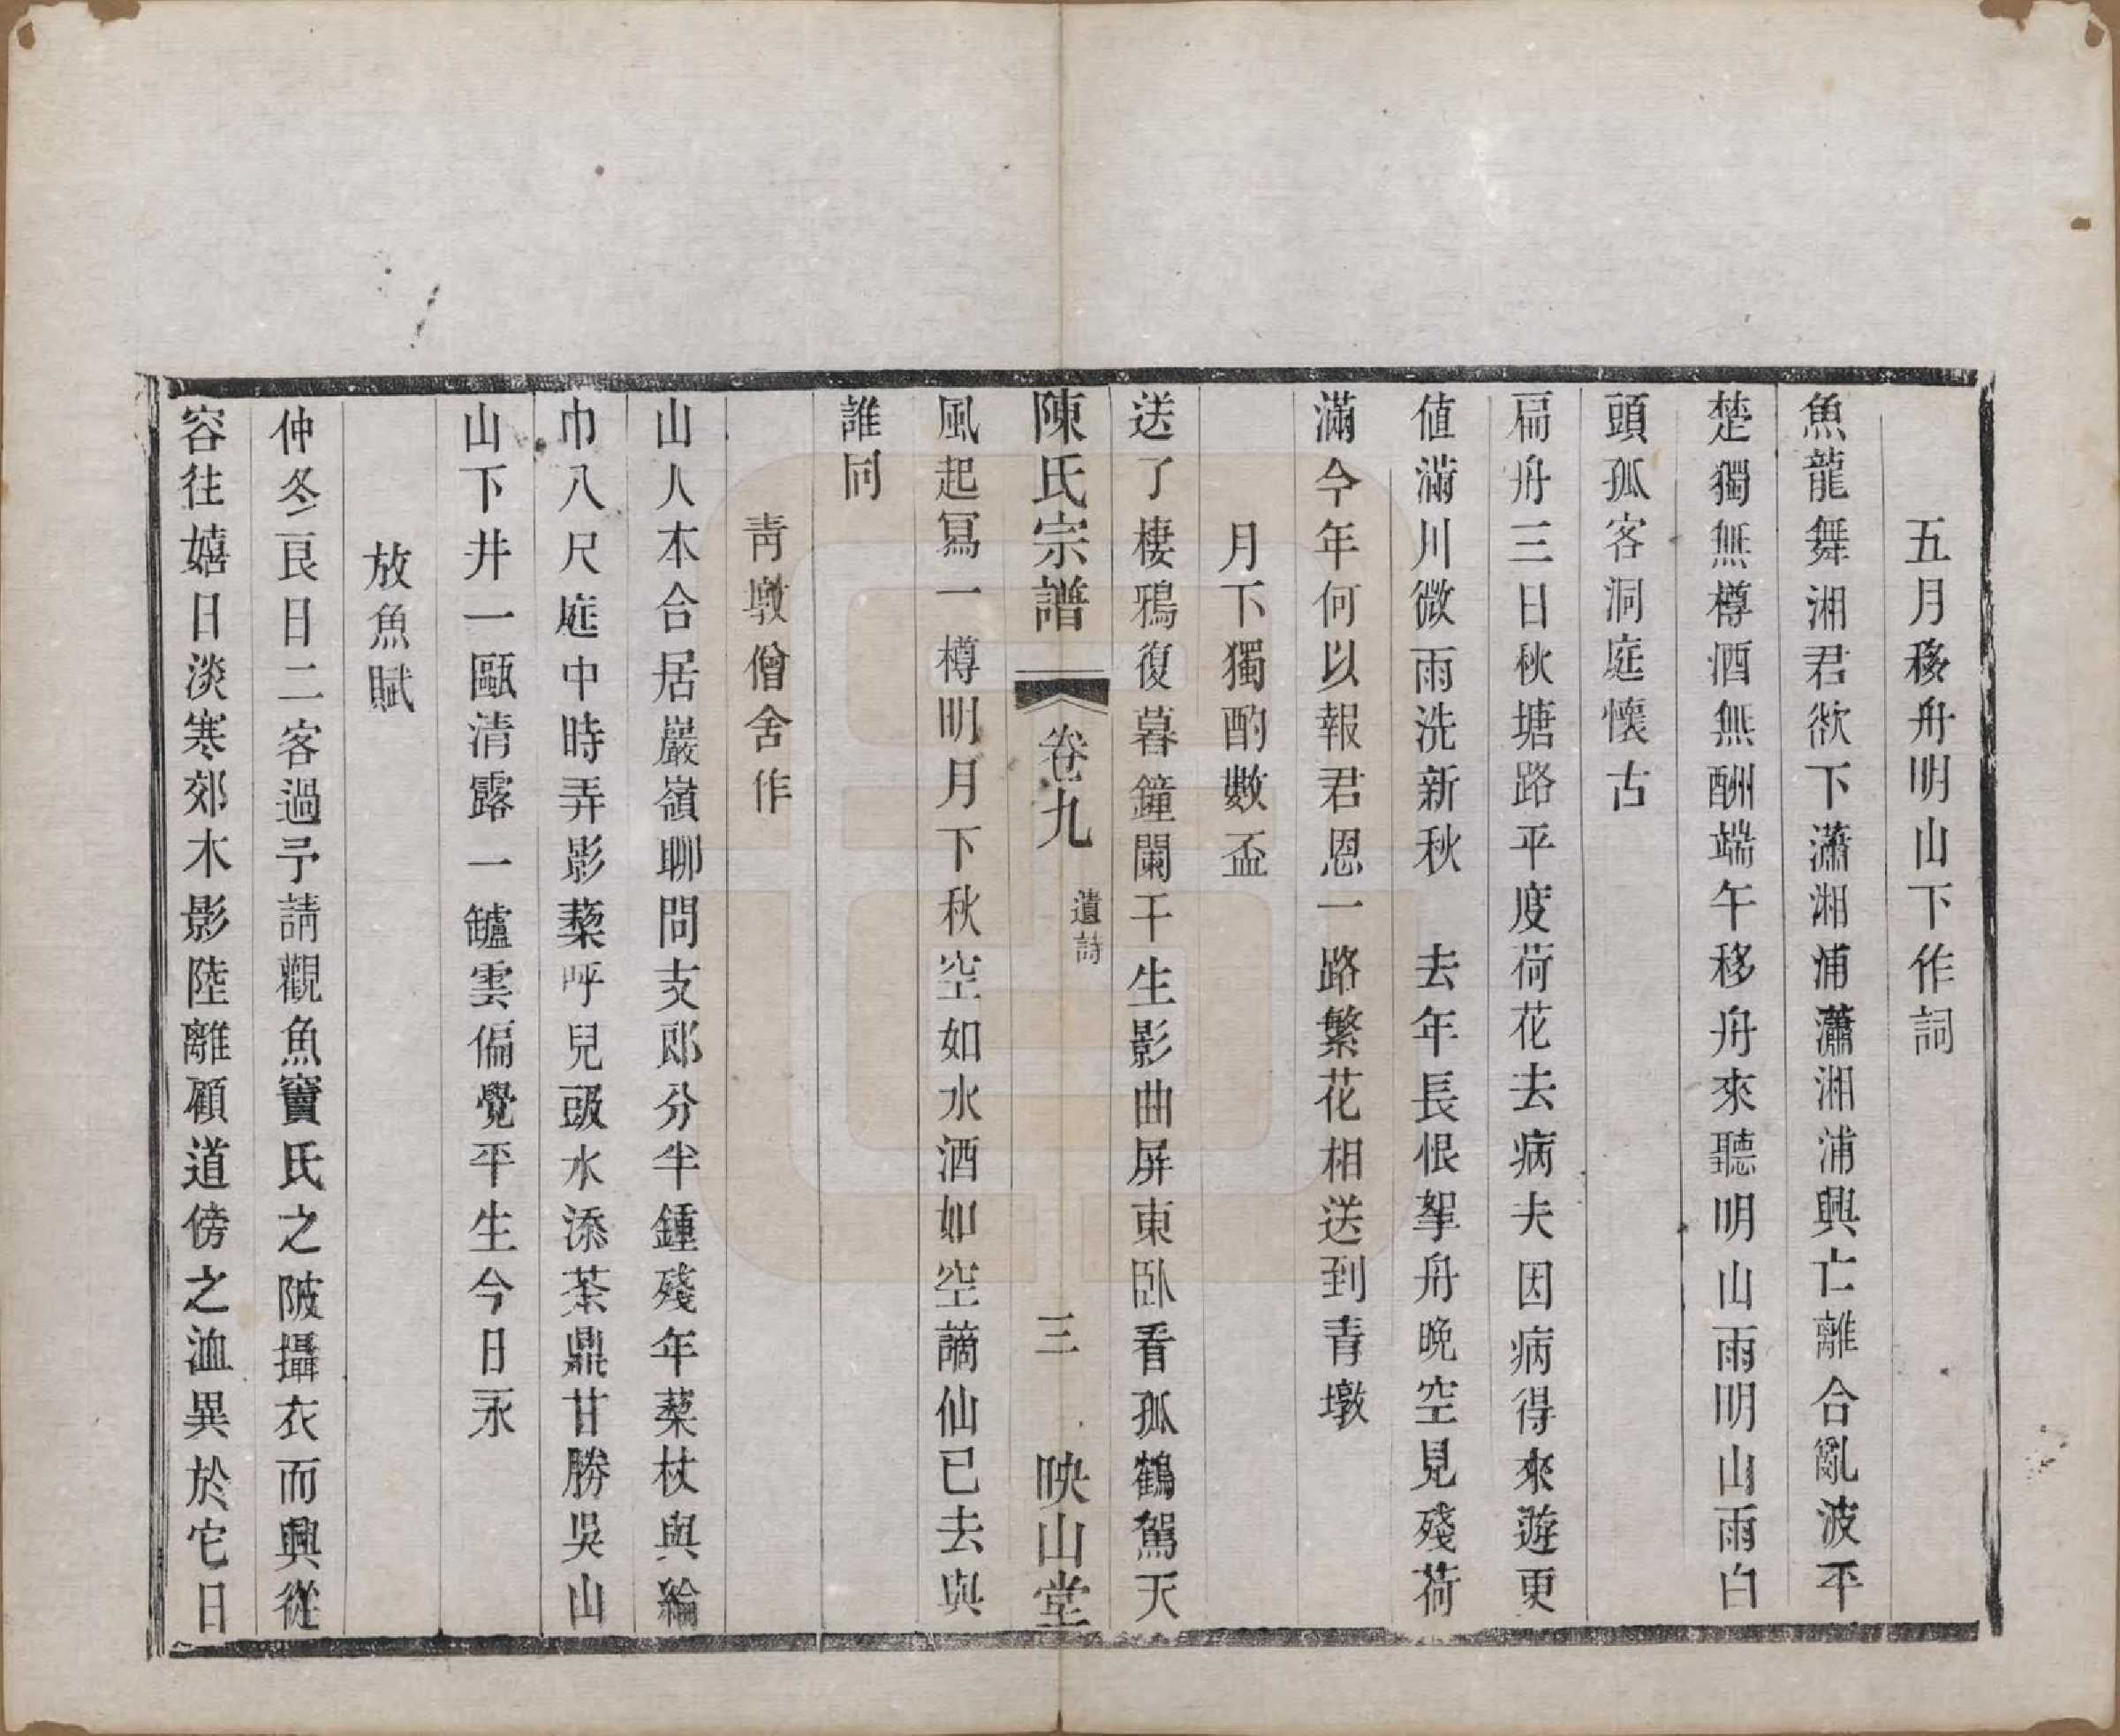 五月移舟明山下作詞
魚龍舞湘君欲下瀟湘浦瀟湘浦興亡離合亂波平
楚獨無樽酒無酬端午移舟來聽明山雨明山雨白
頭孤客洞庭懷古
扁舟三日秋塘路平度荷花去病夫因病得來遊更
值滿川微雨洗新秋　去年長恨拏舟晚空見殘荷
滿今年何以報君恩一路繁花相送到青墩
月下獨酌數盃
送了棲鴉復暮鐘闌干生影曲屏東臥看孤鶴駕天
陳氏宗譜
卷九
遺詩
三
映山堂
風起冩一樽明月下秋空如水酒如空謫仙已去與
誰同
靑墩僧舍作
山人本合居巖嶺聊問支郎分半鍾殘年藜杖與綸
巾八尺庭中時弄影藜呼兒汲水添茶鼎甘勝吳山
山下井一甌清露一鑪雲偏覺平生今日永
放魚賦
仲冬艮日二客過予請觀魚竇氏之陂攝衣而興從
容往嬉日淡寒郊木影陸離顧道傍之洫異於它日